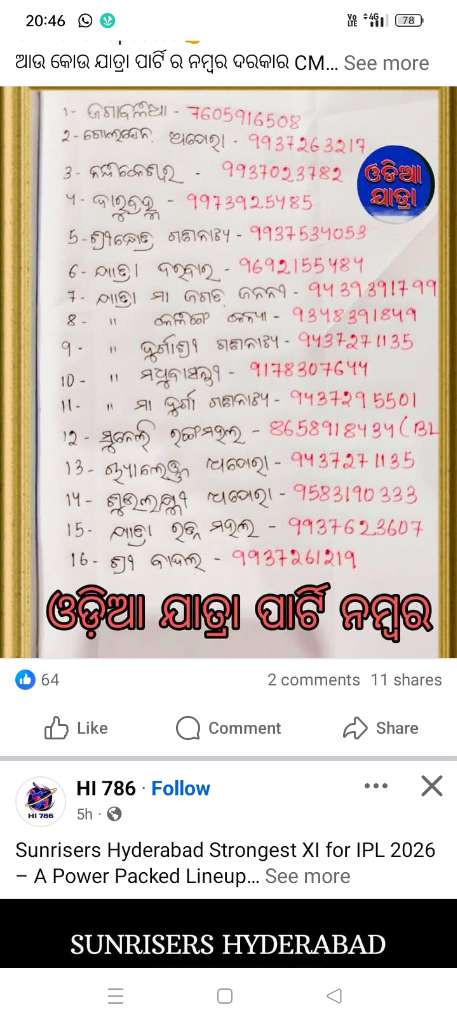 20:46
Vo LTE 4G 78
ଆଉ କୋଉ ଯାତ୍ରା ପାର୍ଟି ର ନମ୍ବର ଦରକାର CM... See more
୧- - 7605916508
2- ଗୋଲଡେନ ଅପେରା - 9937263217
3- - 9937023782
ଓଡିଆ
ଯାତ୍ରା
୪- - 9973925485
5- ଗଣନାଟ୍ୟ - 9937534053
6- ଯାତ୍ରା ଦରବାର - 9692155484
7- ଯାତ୍ରା ମା ଜଗତ ଜନନୀ - 9439391799
8- " କଳିଙ୍ଗ କନ୍ୟା - 9348391849
9- " ଦୁର୍ଗାଶ୍ରୀ ଗଣନାଟ୍ୟ - 9437271135
10- " - 9178307644
11- " ମା ଦୁର୍ଗା ଗଣନାଟ୍ୟ - 9437295501
12- ସୁନେଲି ରଙ୍ଗମହଲ - 8658918434 (BL
13- ଅପେରା - 9437271135
14- ଅପେରା - 9583190333
15- ଯାତ୍ରା ରଙ୍ଗ ମହଲ - 9937623607
16- ଶ୍ରୀ ବାଦଲ - 9937261219
ଓଡ଼ିଆ ଯାତ୍ରା ପାର୍ଟି ନମ୍ବର
64
2 comments 11 shares
Like Comment Share
HI 786
HI 786 · Follow
5h ·
Sunrisers Hyderabad Strongest XI for IPL 2026
– A Power Packed Lineup... See more
SUNRISERS HYDERABAD